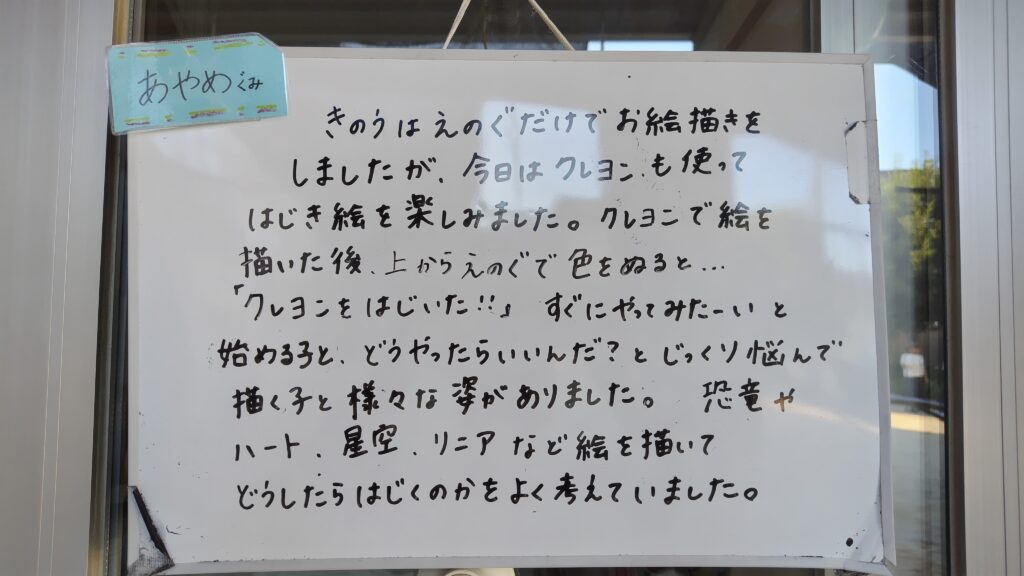 あやめぐみ
きのうはえのぐだけでお絵描きを
しましたが、今日はクレヨンも使って
はじき絵を楽しみました。クレヨンで絵を
描いた後、上からえのぐで色をぬると…
「クレヨンをはじいた!!」 すぐにやってみたーいと
始める子と、どうやったらいいんだ?とじっくり悩んで
描く子と様々な姿がありました。 恐竜や
ハート、星空、リニアなど絵を描いて
どうしたらはじくのかをよく考えていました。